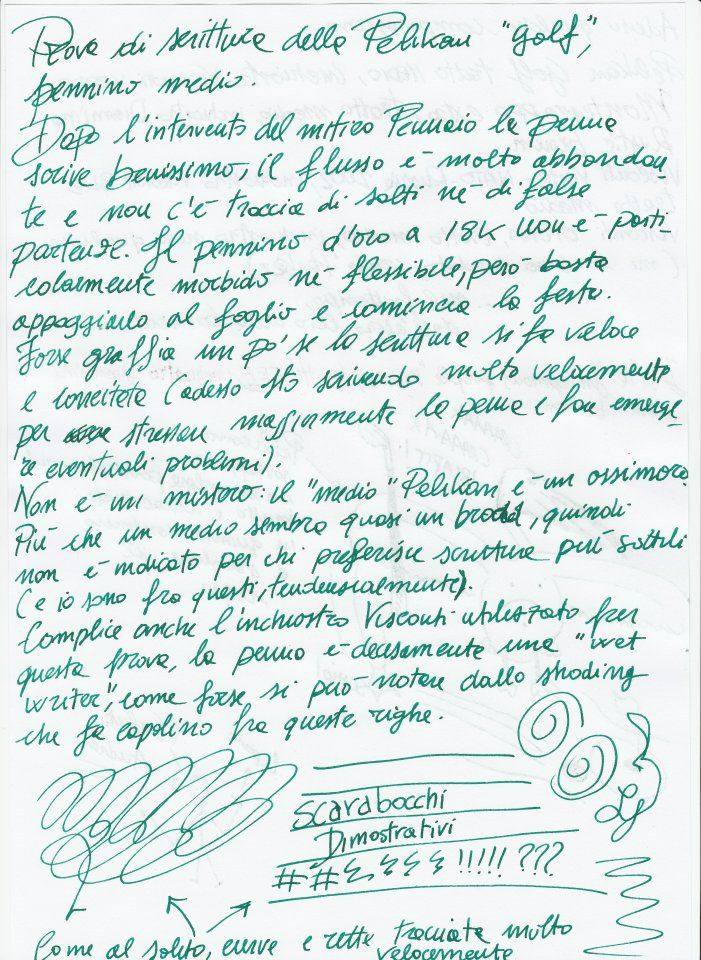 Prova di scrittura della Pelikan "Golf",
pennino medio.
Dopo l'intervento del mitico Pennaio la penna
scrive benissimo, il flusso è molto abbondan
te e non c'è traccia di salti né di false
partenze. Il pennino d'oro a 18K non è parti
colarmente morbido né flessibile, però basta
appoggiarlo al foglio e comincia la festa.
Forse graffia un po' se la scrittura si fa veloce
e concitata (adesso sto scrivendo molto velocemente
per stressare massimamente la penna e far emerge-
re eventuali problemi).
Non è un mistero: il "medio" Pelikan è un ossimoro.
Più che un medio sembra quasi un broad, quindi
non è indicato per chi preferisce scritture più sottili
(e io sono fra questi, tendenzialmente).
Complice anche l'inchiostro Visconti utilizzato per
questa prova, la penna è decisamente una "wet
writer", come forse si può notare dallo shading
che fa capolino fra queste righe.
Scarabocchi
Dimostrativi
## !!!!! ???
Come al solito, curve e rette tracciate molto
velocemente